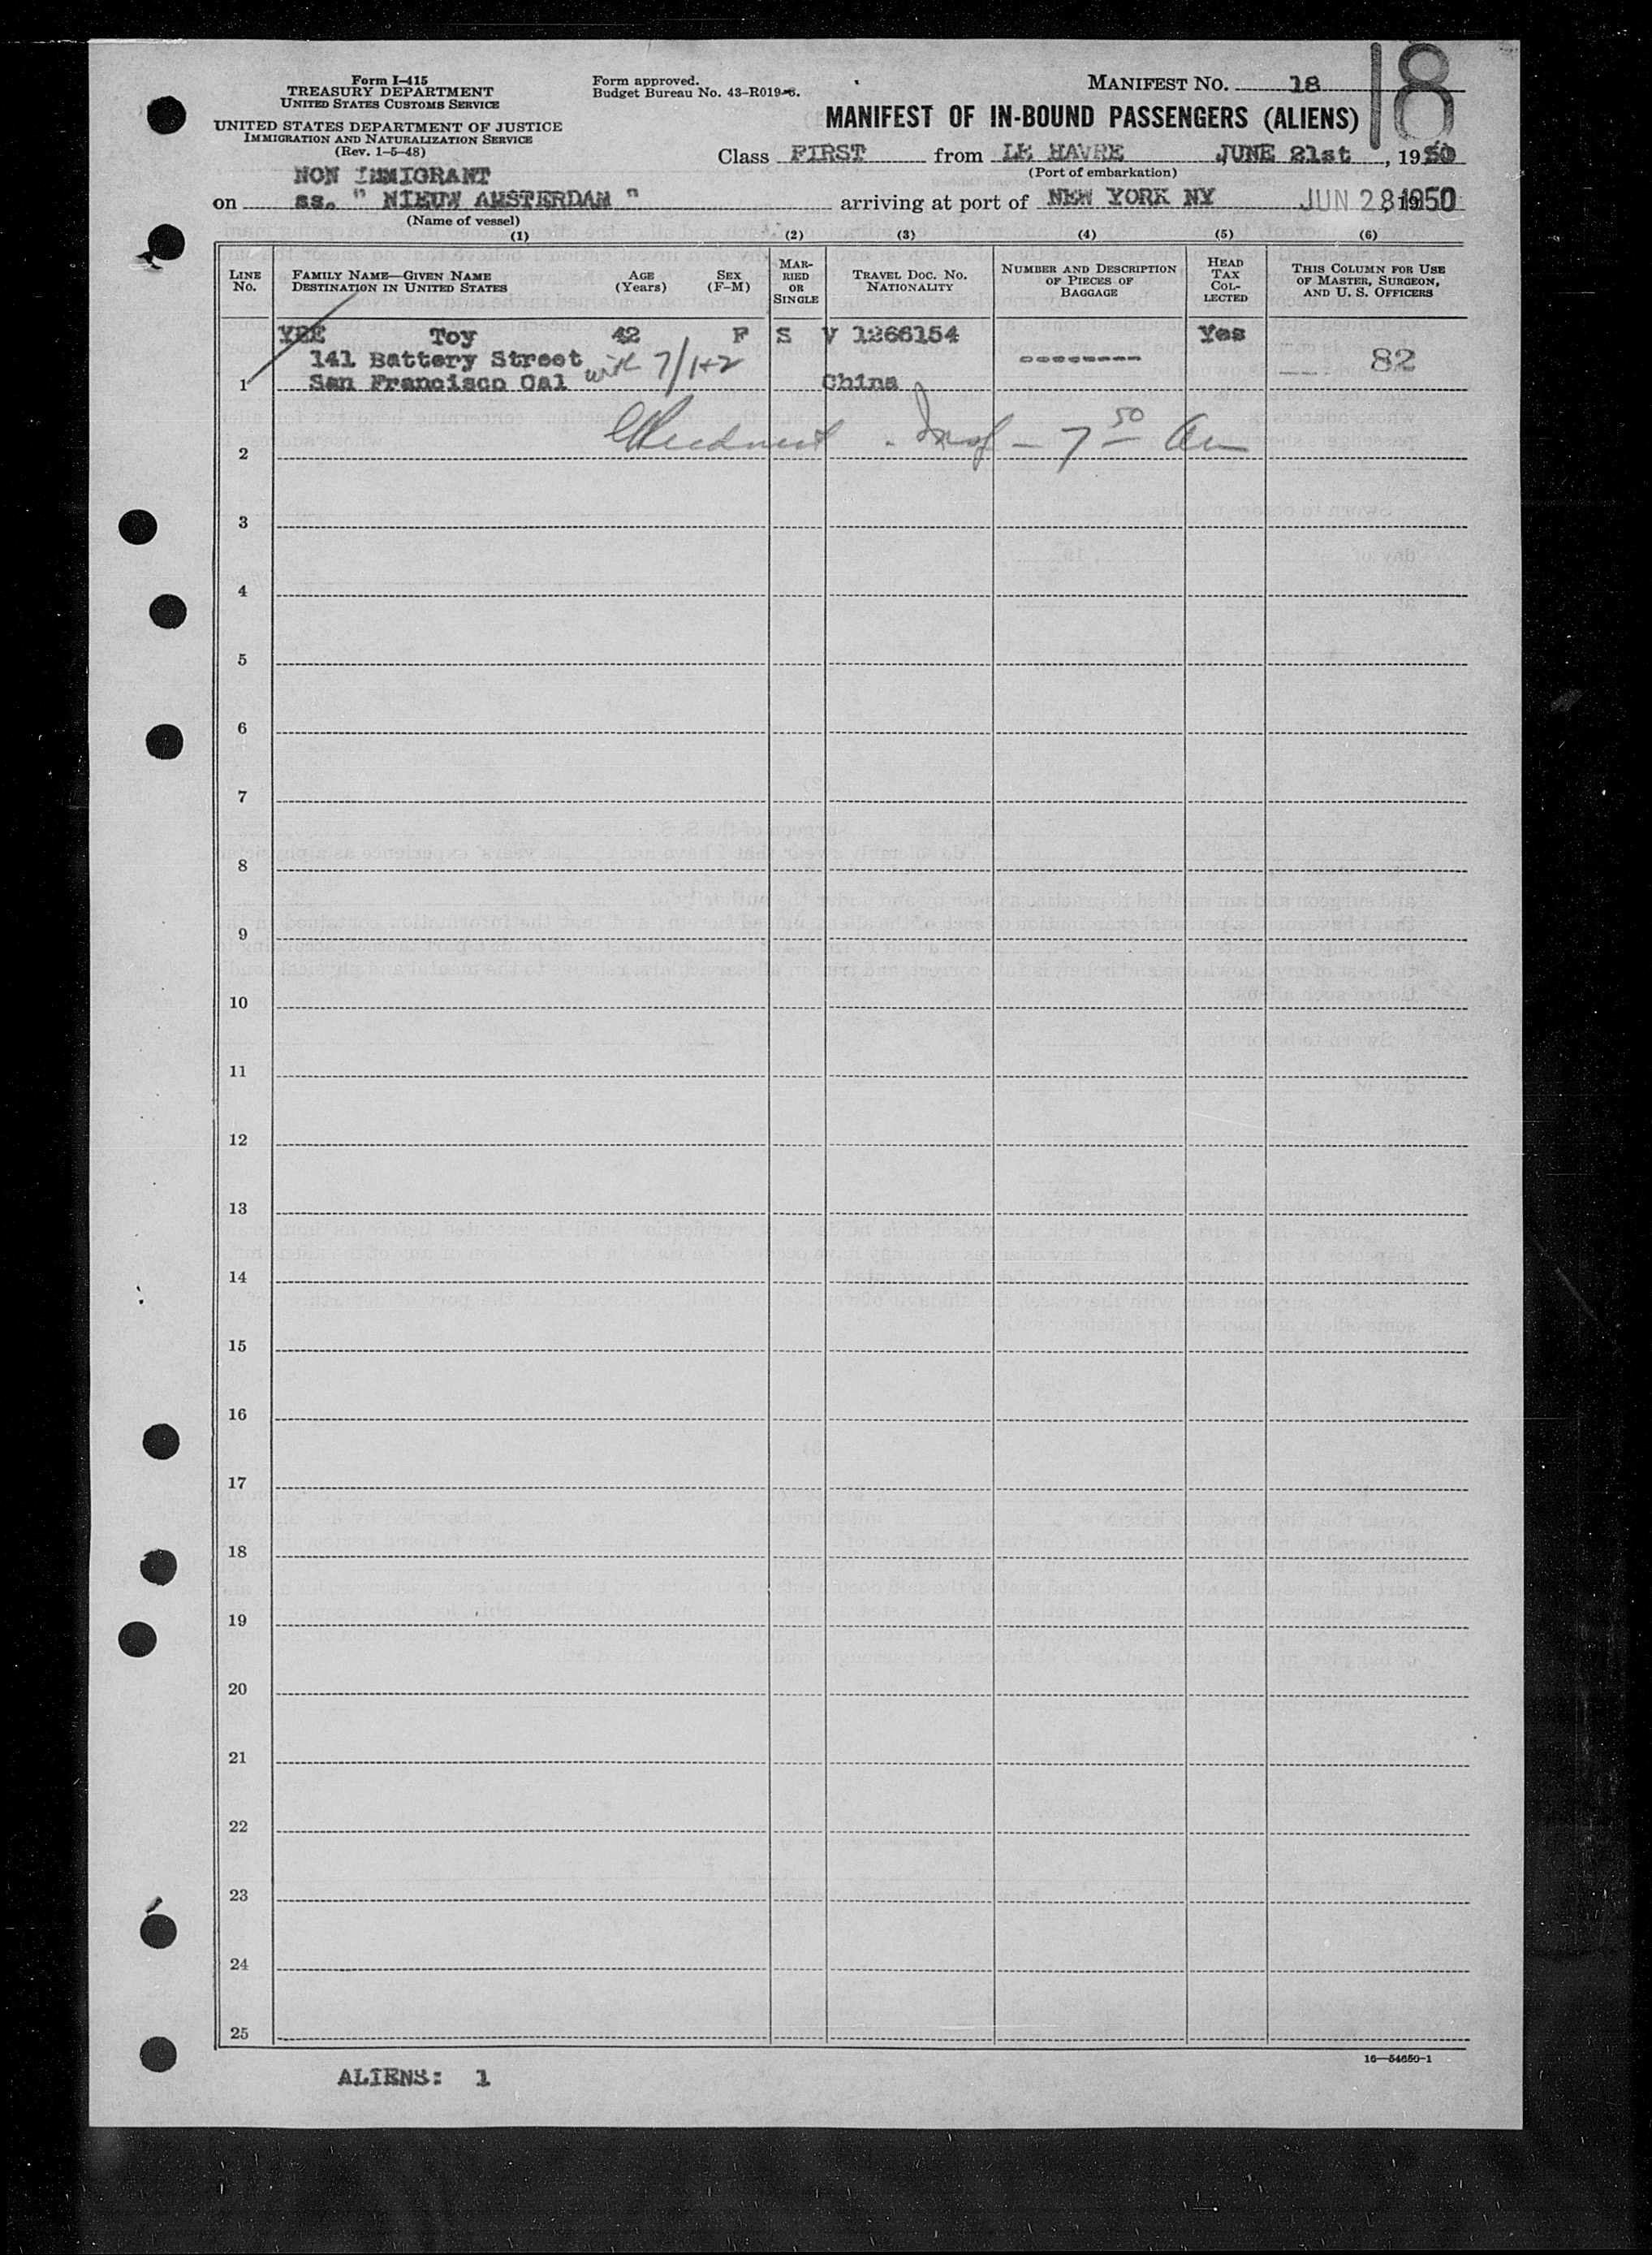 Form I-415
TREASURY DEPARTMENT
UNITED STATES CUSTOMS SERVICE
UNITED STATES DEPARTMENT OF JUSTICE
IMMIGRATION AND NATURALIZATION SERVICE
(Rev. 1-5-48)
Form approved.
Budget Bureau No. 43-R019-6.
MANIFEST NO. 18
18
MANIFEST OF IN-BOUND PASSENGERS (ALIENS)
Class FIRST from LE HAVRE JUNE 21st, 1950
(Port of embarkation)
NON IMMIGRANT
on ss. " NIEUW AMSTERDAM " arriving at port of NEW YORK NY JUN 28 1950
(Name of vessel)
(1) (2) (3) (4) (5) (6)
LINE NO.
FAMILY NAME—GIVEN NAME
DESTINATION IN UNITED STATES
AGE (Years)
SEX (F-M)
MARRIED OR SINGLE
TRAVEL DOC. NO.
NATIONALITY
NUMBER AND DESCRIPTION OF PIECES OF BAGGAGE
HEAD TAX COLLECTED
THIS COLUMN FOR USE OF MASTER, SURGEON, AND U. S. OFFICERS
YEE Toy 42 F S V 1266154 Yes
141 Battery Street with 7/1+2 -------- 82
1 San Francisco Cal China
2 7 50
3
4
5
6
7
8
9
10
11
12
13
14
15
16
17
18
19
20
21
22
23
24
25
16—54650-1
ALIENS: 1